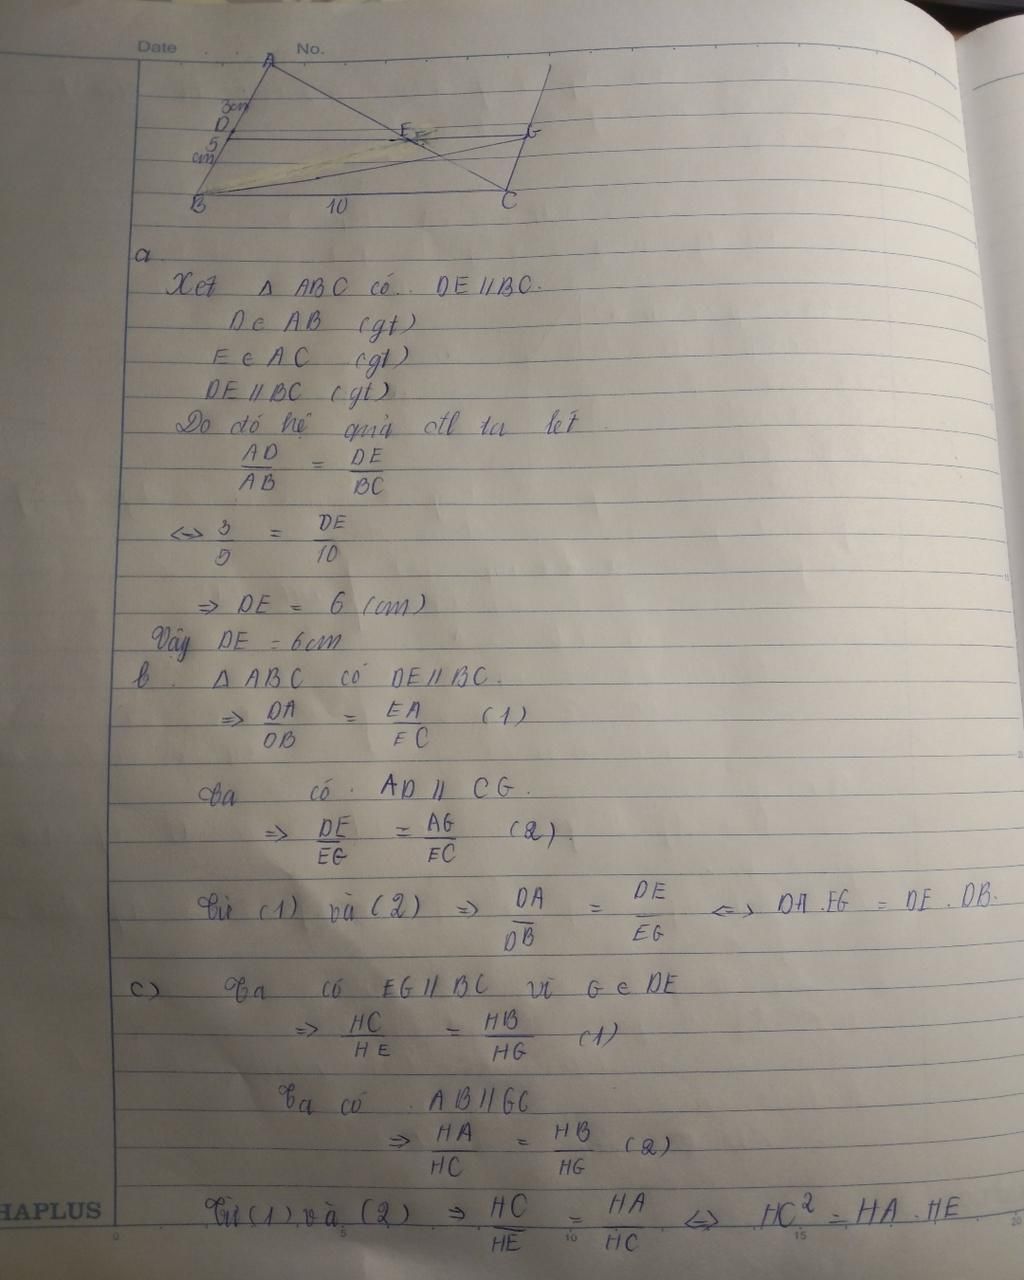 Date . . No.
A
3cm
D
E
G
5
cm
B
10
C
a
Xét Δ ABC có DE // BC.
D ∈ AB (gt)
E ∈ AC (gt)
DE // BC (gt)
Do đó hệ quả đl ta lét
AD/AB = DE/BC
<=> 3/5 = DE/10
=> DE = 6 (cm)
Vậy DE = 6cm
b. Δ ABC có DE // BC.
=> DA/DB = EA/EC (1)
Ta có. AD // CG.
=> DE/EG = AG/EC (2).
Từ (1) và (2) => DA/DB = DE/EG <=> DA.EG = DE.DB.
c) Ta có EG // BC vì G ∈ DE
=> HC/HE = HB/HG (1)
Ta có . AB // GC
=> HA/HC = HB/HG (2)
Từ (1) và (2) => HC/HE = HA/HC <=> HC² = HA.HE
HAPLUS
0 5 10 15 20